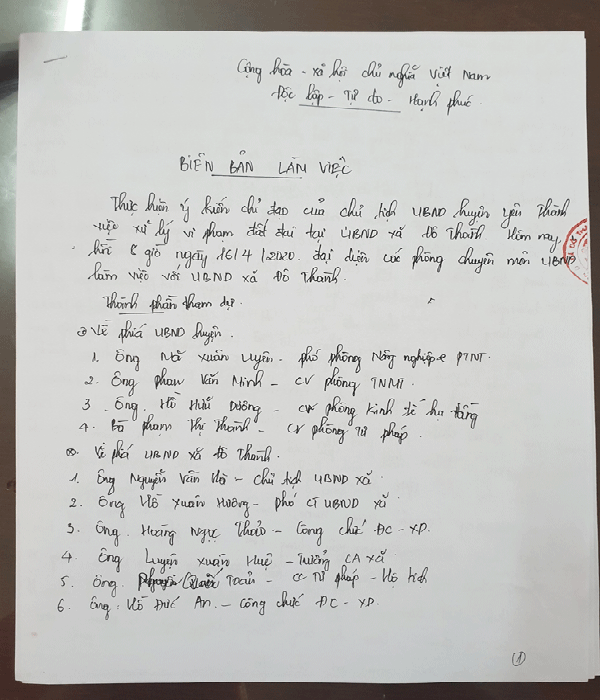 Cộng hòa - xã hội chủ nghĩa Việt Nam
Độc lập - Tự do - Hạnh phúc
BIÊN BẢN LÀM VIỆC
Thực hiện ý kiến chỉ đạo của chủ tịch UBND huyện yên Thành
việc xử lý vi phạm đất đai tại UBND xã Đô Thành Hôm nay,
hồi 8 giờ ngày 16/4/2020. đại diện các phòng chuyên môn UBND
làm việc với UBND xã Đô Thành.
Thành phần tham dự.
Về phía UBND huyện.
1. Ông Xuân Luyện - phó phòng Nông nghiệp PTNT.
2. Ông phan Văn Minh - CV phòng TNMT
3. Ông. Hồ Hữu Dương - CV phòng kinh tế hạ tầng
4. Bà phạm Thị Thành - CV phòng Tư pháp.
Về phía UBND xã Đô Thành.
1. Ông Nguyễn Văn Hà - Chủ tịch UBND xã.
2. Ông Hồ Xuân Hướng - Phó CT UBND xã
3. Ông. Hoàng Ngọc Thảo - Công chức ĐC - XD.
4. Ông Luyện Xuân Huệ - Trưởng CA xã
5. Ông. Quốc Toản - CC Tư pháp - Hộ tịch
6. Ông. Hồ Đức An. - Công chức ĐC - XD.
(1)